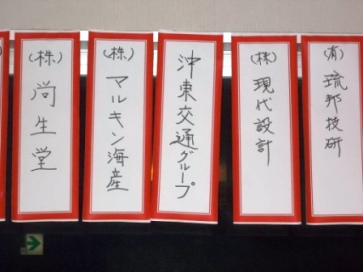 (有)琉邦技研
(株)現代設計
沖東交通グループ
(株)マルキン海産
(株)尚生堂